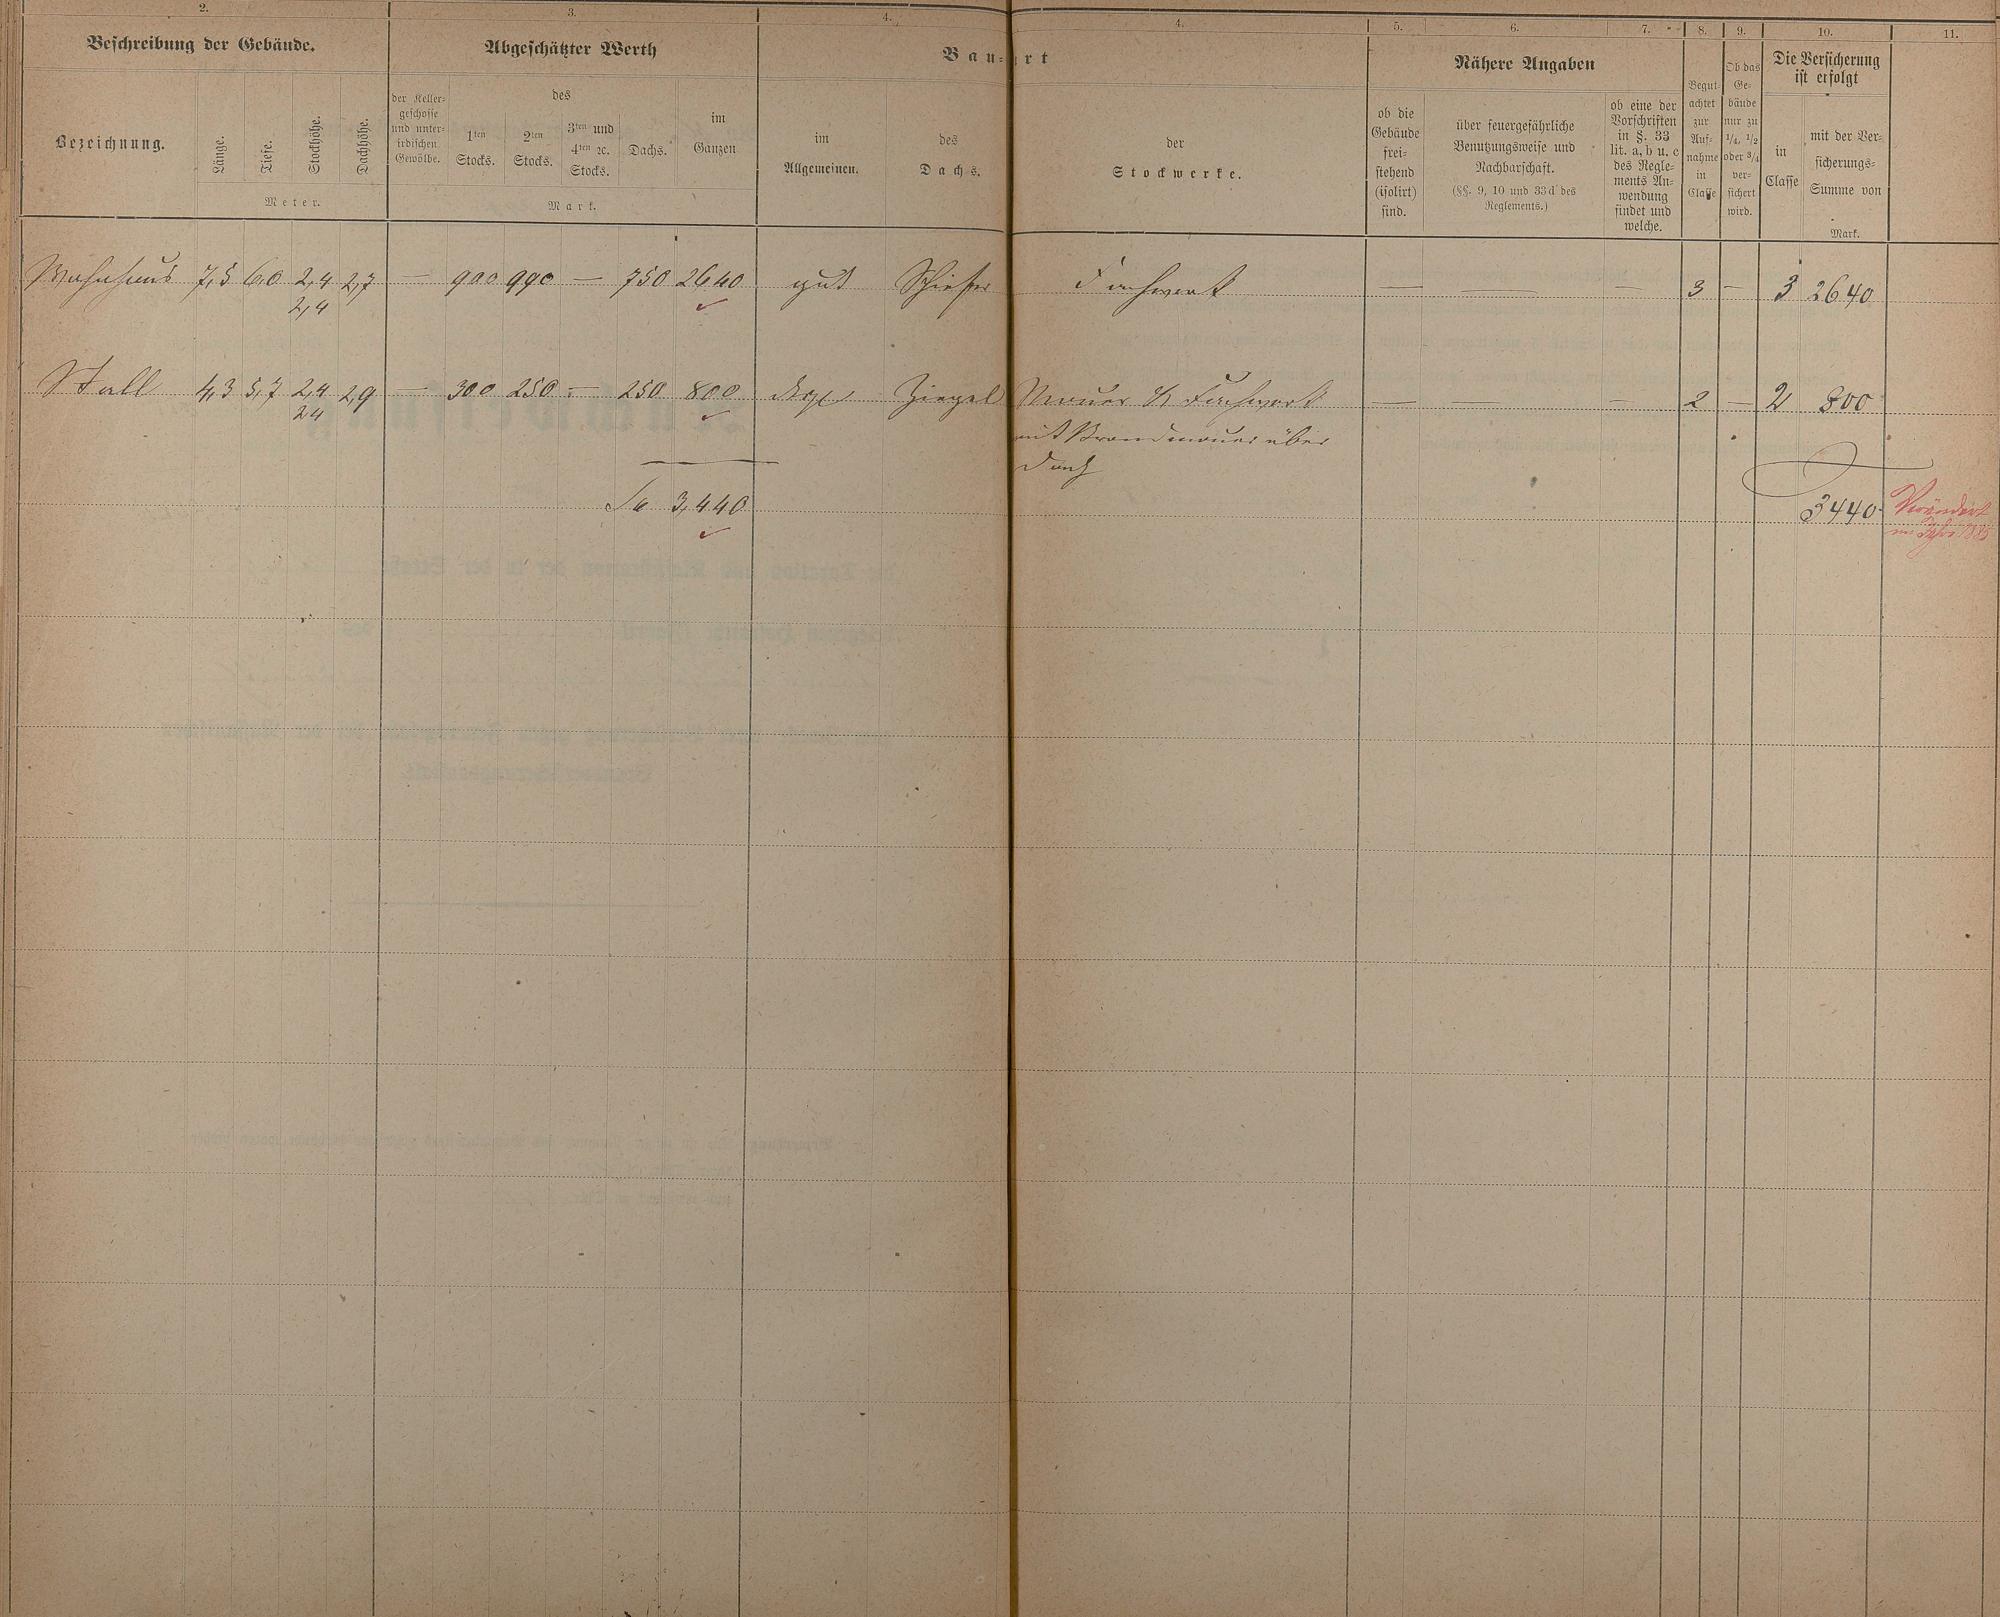 2. 3. 4. 4. 5. 6. 7. 8. 9. 10. 11.
Beschreibung der Gebäude.
Abgeschätzter Werth
Bau-Art
Nähere Angaben
Die Versicherung
ist erfolgt
Bezeichnung.
Länge.
Tiefe.
Stockhöhe.
Dachhöhe.
Meter.
der Keller-
geschosse
und unter-
irdischen
Gewölbe.
des
1ten
Stocks.
2ten
Stocks.
3ten und
4ten ꝛc.
Stocks.
Dachs.
im
Ganzen
Mark.
im
Allgemeinen.
des
Dachs.
der
Stockwerke.
ob die
Gebäude
frei-
stehend
(isolirt)
sind.
über feuergefährliche
Benutzungsweise und
Nachbarschaft.
(§§. 9, 10 und 33d des
Reglements.)
ob eine der
Vorschriften
in §. 33
lit. a, b u. c
des Regle-
ments An-
wendung
findet und
welche.
Begut-
achtet
zur
Auf-
nahme
in
Classe
Ob das
Ge-
bäude
nur zu
1/4, 1/2
oder 3/4
ver-
sichert
wird.
in
Classe
mit der Ver-
sicherungs-
Summe von
Mark.
Wohnhaus 7,5 6,0 2,4 2,7 — 900 990 — 750 2640 gut Schiefer Fachwerk — — — 3 — 3 2640
2,4
Stall 4,3 5,7 2,4 2,9 — 300 250 — 250 800 Ziegel Mauer & Fachwerk — — — 2 — 2 800
2,4
mit Brandmauer über
Dach
Sa 3,440
3440
Verändert
im Jahre